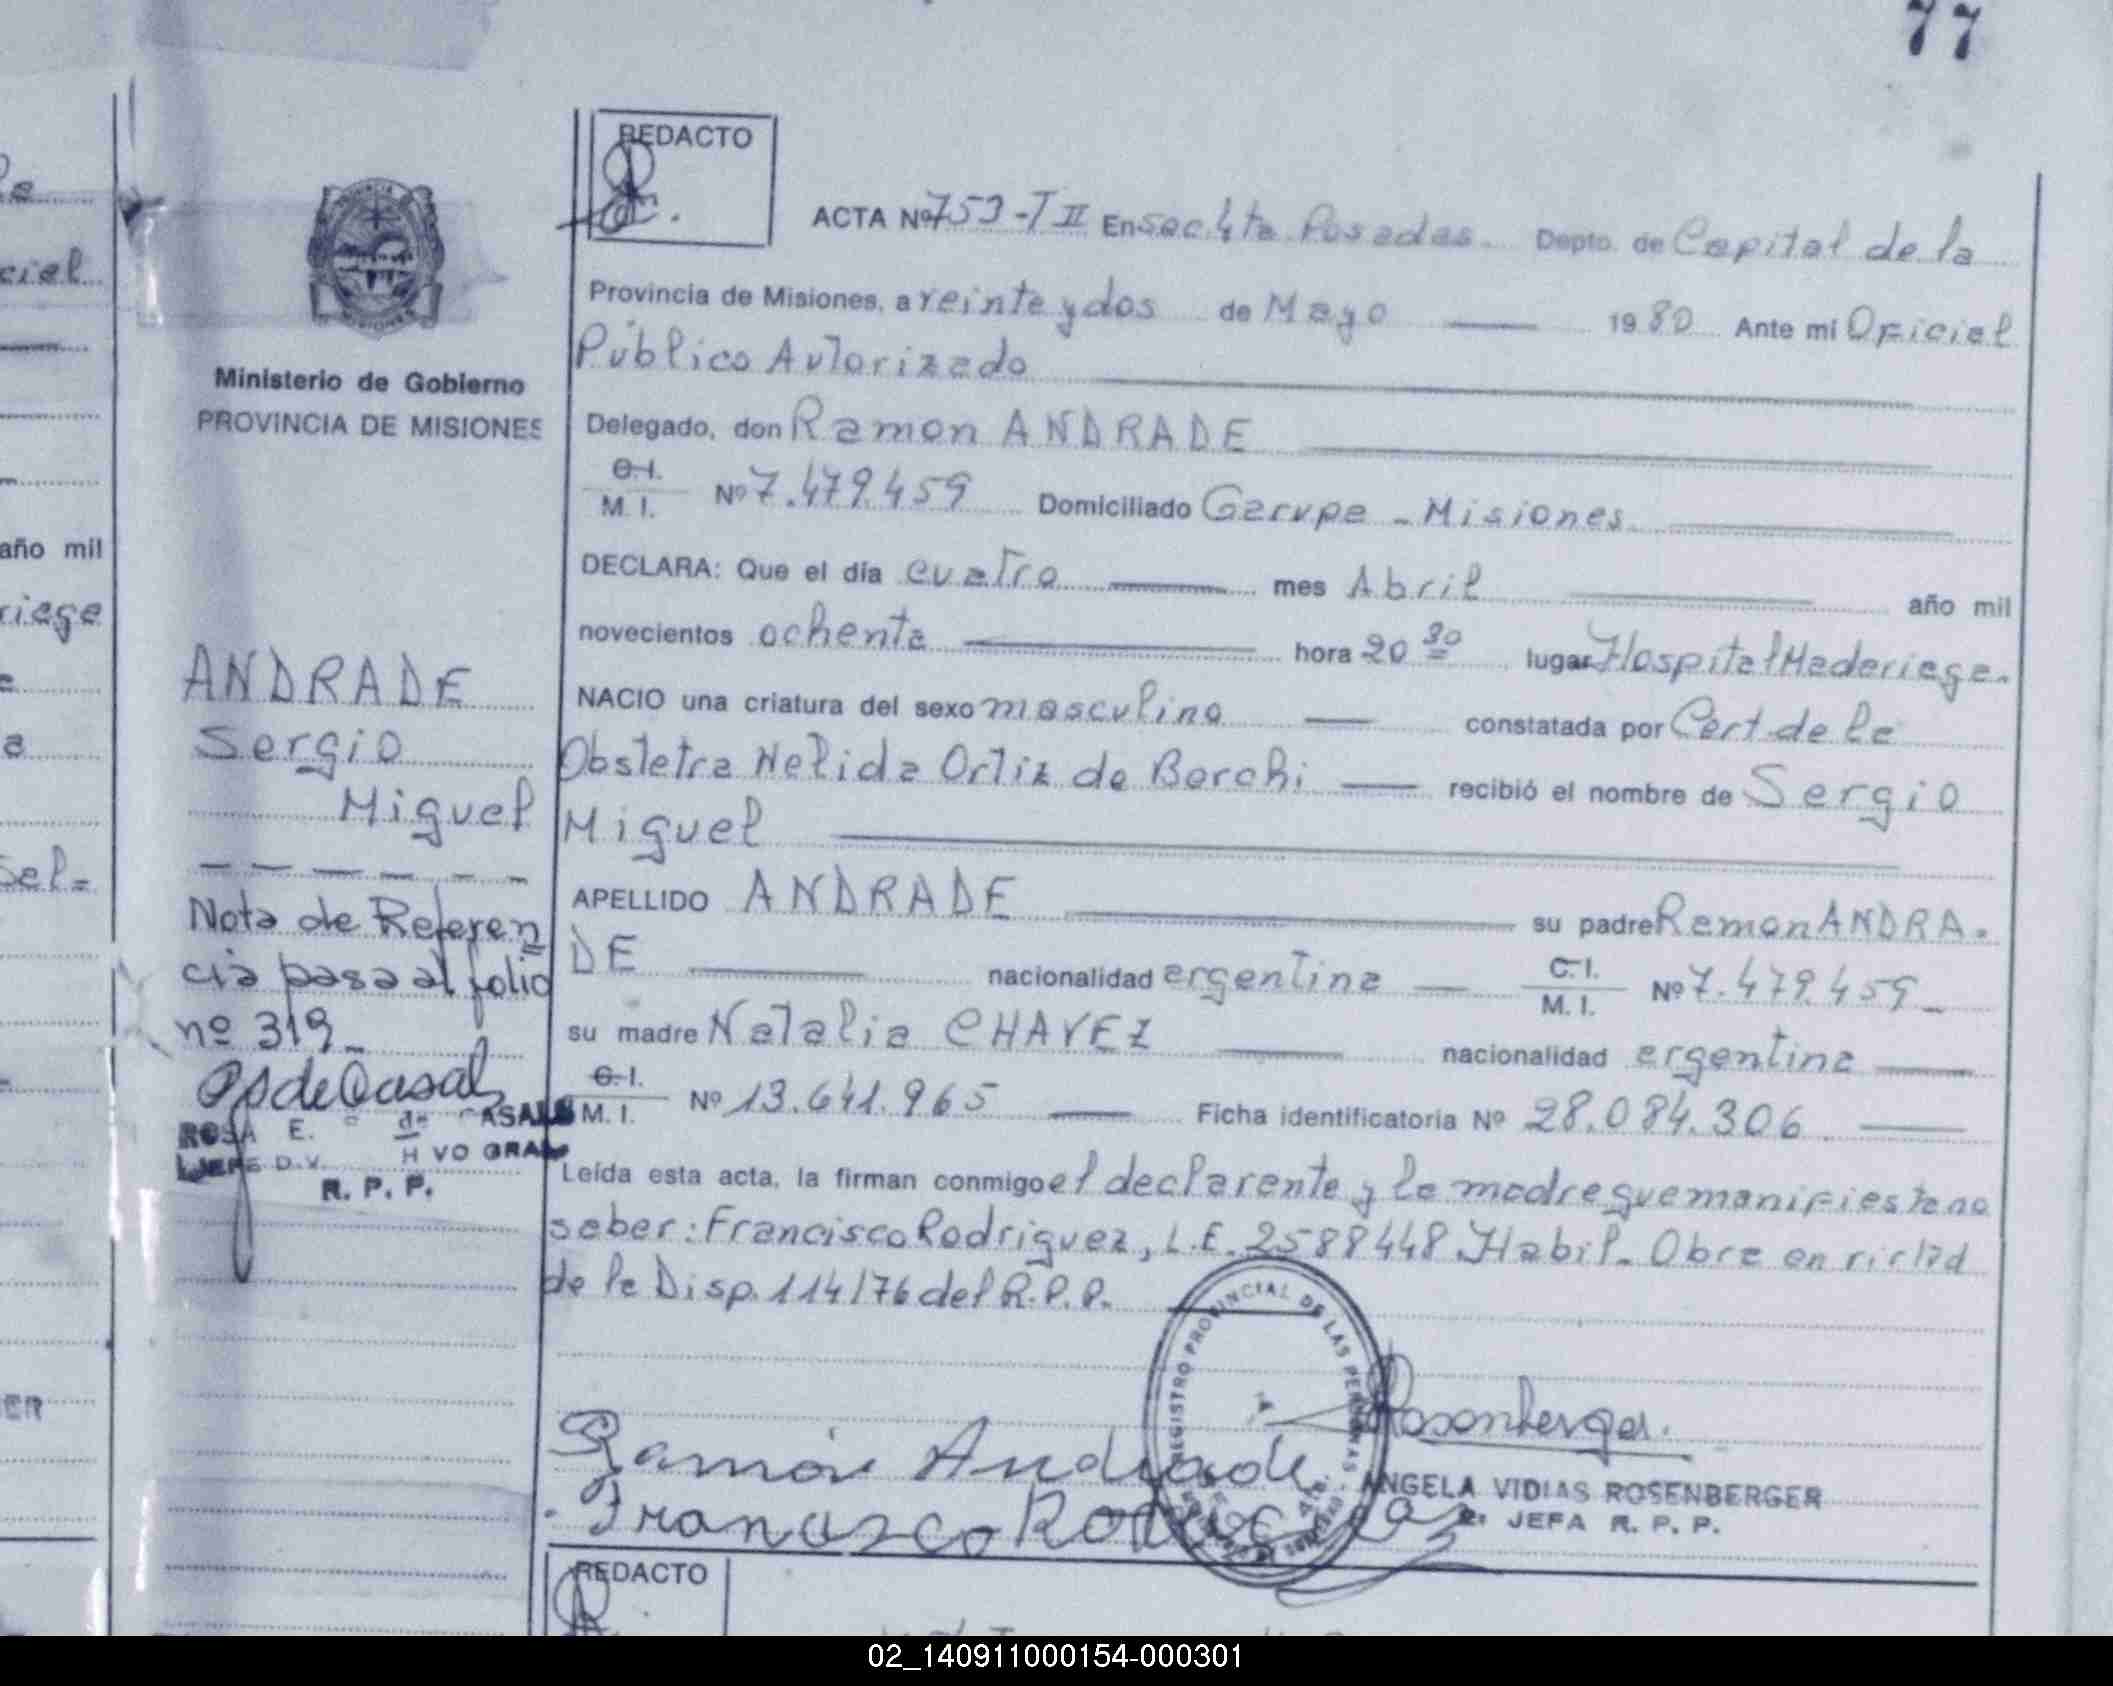 77
REDACTO
ACTA Nº 753-T II En Sec. 4ta Posadas. Depto. de Capital de la
Provincia de Misiones, a veinte y dos de Mayo 1980 Ante mi Oficial
Público Autorizado
Delegado, don Ramon ANDRADE
C.I.
M. I. Nº 7.479.459 Domiciliado Garupa - Misiones
DECLARA: Que el día cuatro mes Abril año mil
novecientos ochenta hora 20 30 lugar Hospital Madariaga.
NACIO una criatura del sexo masculino constatada por Cert. de la
Obstetra Nelida Ortiz de Borchi recibió el nombre de Sergio
Miguel
APELLIDO ANDRADE su padre Ramon ANDRA-
DE nacionalidad argentina C.I.
M. I. Nº 7.479.459
su madre Natalia CHAVEZ nacionalidad argentina
C.I.
M. I. Nº 13.641.965 Ficha identificatoria Nº 28.084.306
Leída esta acta, la firman conmigo el declarante y la madre que manifiesta no
saber: Francisco Rodriguez, L.E. 2588448 Habil. Obra en virtud
de la Disp. 114/76 del R.P.P.
Ramón Andrade
Francisco Rodriguez
Rosenberger.
ANGELA VIDIAS ROSENBERGER
JEFA R. P. P.
REGISTRO PROVINCIAL DE LAS PERSONAS
REDACTO
MISIONES
Ministerio de Gobierno
PROVINCIA DE MISIONES
ANDRADE
Sergio
Miguel
Nota de Referen
cia pasa al folio
nº 319
de Casals
ROSA E. de CASALS
JEFE DIV. ARCHIVO GRAL
R. P. P.
cial
año mil
riaga
a
sel=
en
02_140911000154-000301